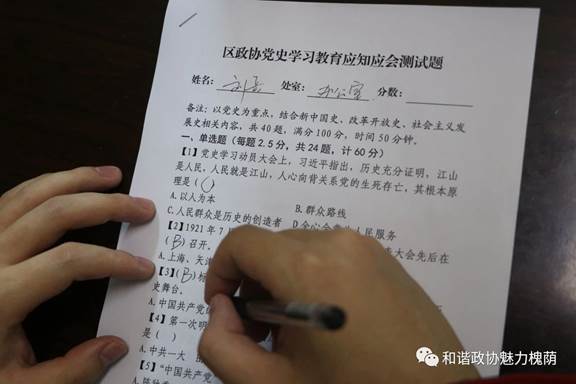 区政协党史学习教育应知应会测试题
姓名： 处室：办公室 分数：
备注：以党史为重点，结合新中国史、改革开放史、社会主义发
展史相关内容，共40题，满分100分，时间50分钟。
一、单选题（每题2.5分，共24题，计60分）
【1】党史学习动员大会上，习近平指出，历史充分证明，江山
是人民，人民就是江山，人心向背关系党的生死存亡，其根本原
理是（ ）
A.以人为本 B.群众路线
C.人民群众是历史的创造者 D.全心全意为人民服务
【2】1921年7 大会先后在
（B）召开。
A.上海、天津
【3】（B）标
史舞台。
A.中国共产党
【4】第一次明
是（ ）
A.中共一大
【5】“中国共产
和谐政协魅力槐荫